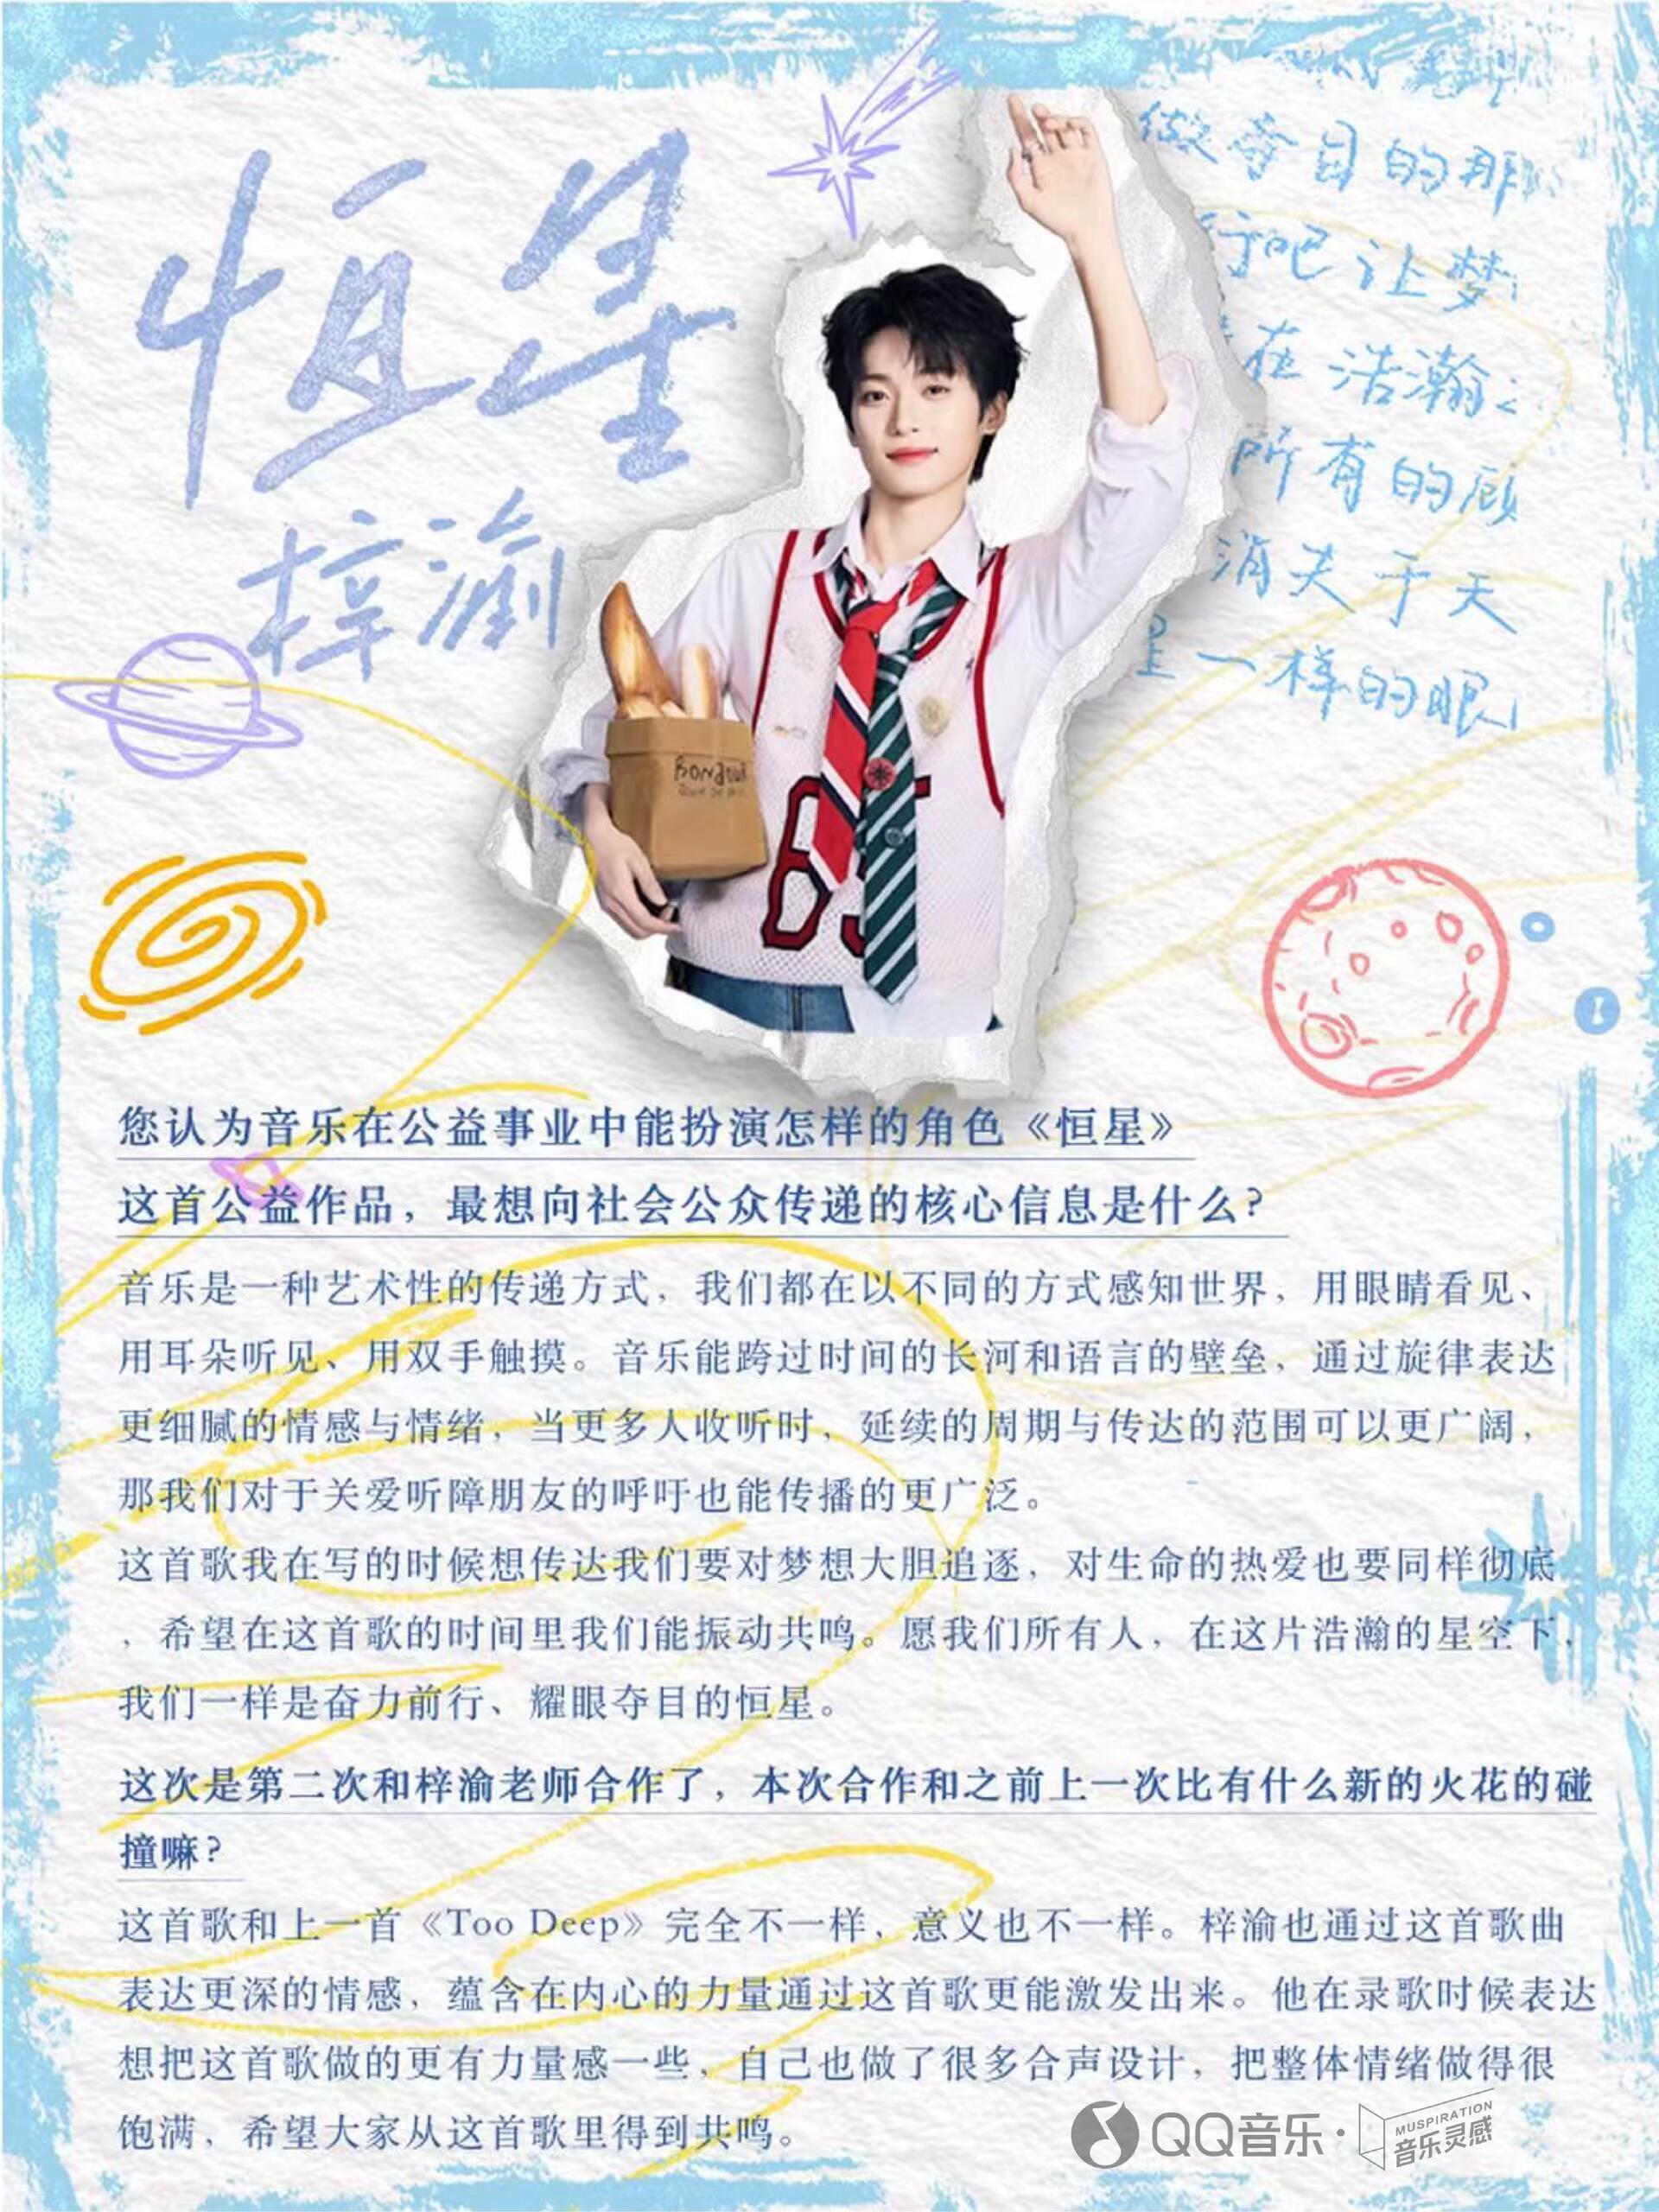 恒星
梓渝
做夺目的那
行吧 让梦
在 浩瀚
所有的顾
消失于天
星一样的眼
BONJOUR
65
您认为音乐在公益事业中能扮演怎样的角色《恒星》
这首公益作品，最想向社会公众传递的核心信息是什么？
音乐是一种艺术性的传递方式，我们都在以不同的方式感知世界，用眼睛看见、
用耳朵听见、用双手触摸。音乐能跨过时间的长河和语言的壁垒，通过旋律表达
更细腻的情感与情绪，当更多人收听时，延续的周期与传达的范围可以更广阔，
那我们对于关爱听障朋友的呼吁也能传播的更广泛。
这首歌我在写的时候想传达我们要对梦想大胆追逐，对生命的热爱也要同样彻底
，希望在这首歌的时间里我们能振动共鸣。愿我们所有人，在这片浩瀚的星空下，
我们一样是奋力前行、耀眼夺目的恒星。
这次是第二次和梓渝老师合作了，本次合作和之前上一次比有什么新的火花的碰
撞嘛？
这首歌和上一首《Too Deep》完全不一样，意义也不一样。梓渝也通过这首歌曲
表达更深的情感，蕴含在内心的力量通过这首歌更能激发出来。他在录歌时候表达
想把这首歌做的更有力量感一些，自己也做了很多合声设计，把整体情绪做得很
饱满，希望大家从这首歌里得到共鸣。
QQ音乐·MUSPIRATION
音乐灵感